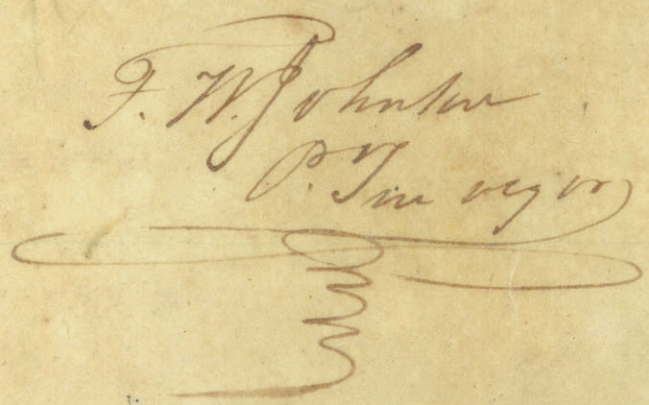 F. W. Johnson
P. Surveyor